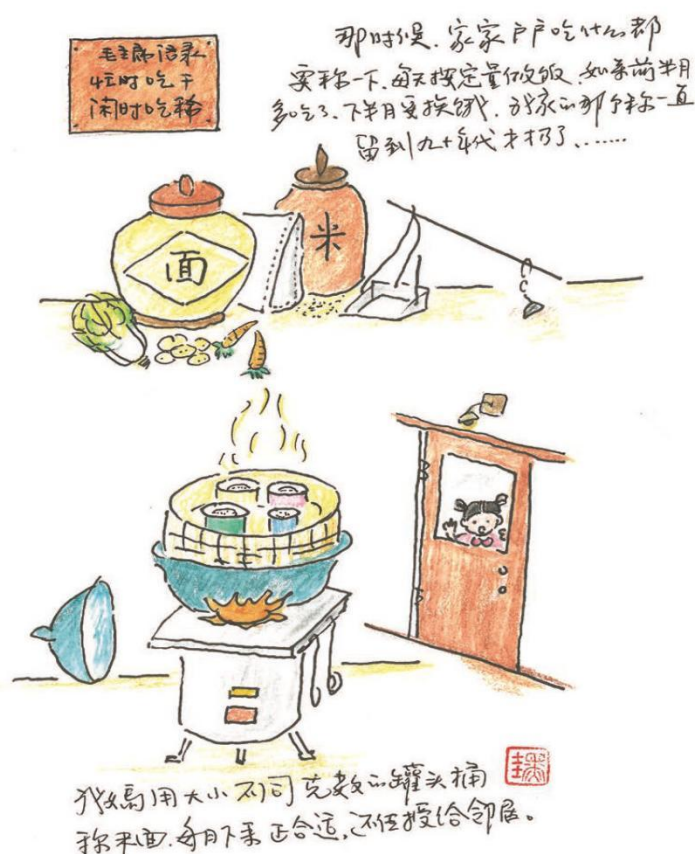 毛主席语录
忙时吃干
闲时吃稀
那时候、家家户户吃什么都
要称一下、每天按定量做饭、如果前半月
多吃了、下半月要挨饿、我家的那个称一直
留到九十年代才扔了、……
面
米
我妈用大小不同克数的罐头桶
称米面、每月下来正合适,还传授给邻居。